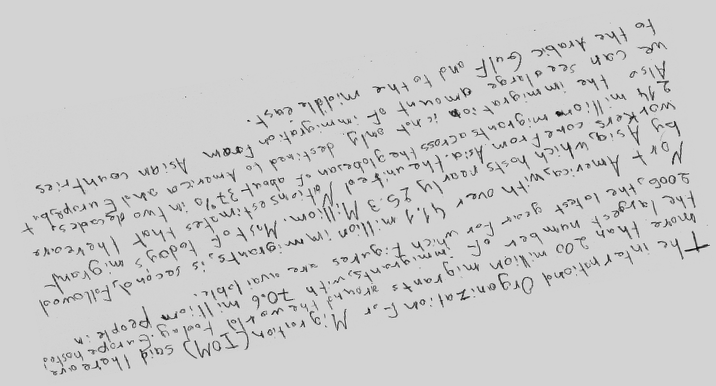 The international Organization for Migration (IOM) said there are
more than 200 million migrants around the world today. Europe hosted
the largest number of immigrants, with 70.6 million people in
2005, the latest year for which figures are available.
Nort America, with over 41,1 million immigrants, is second, followed
by Asia, which hosts nearly 25.3 Million. Most of today's migrant
workers come from Asia. the united Nations estimates that there are
214 million migrants across the globe, an about 37% in two decades,
Also the immigration is not only destined to America and Europe, but
we can see a large amount of immigration from Asian countries
to the Arabic Gulf and to the middle east.